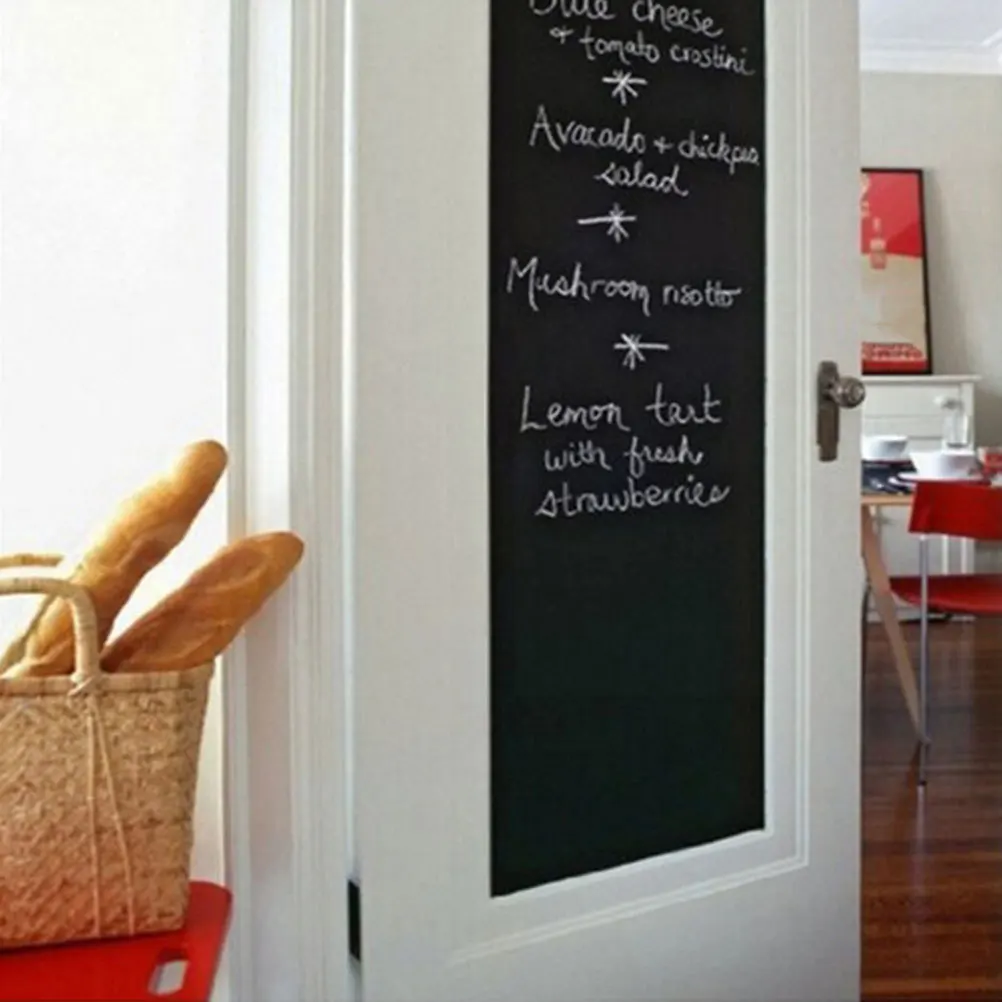 Blue cheese
+ tomato crostini
Avacado + chickpea
salad
Mushroom risotto
Lemon tart
with fresh
strawberries